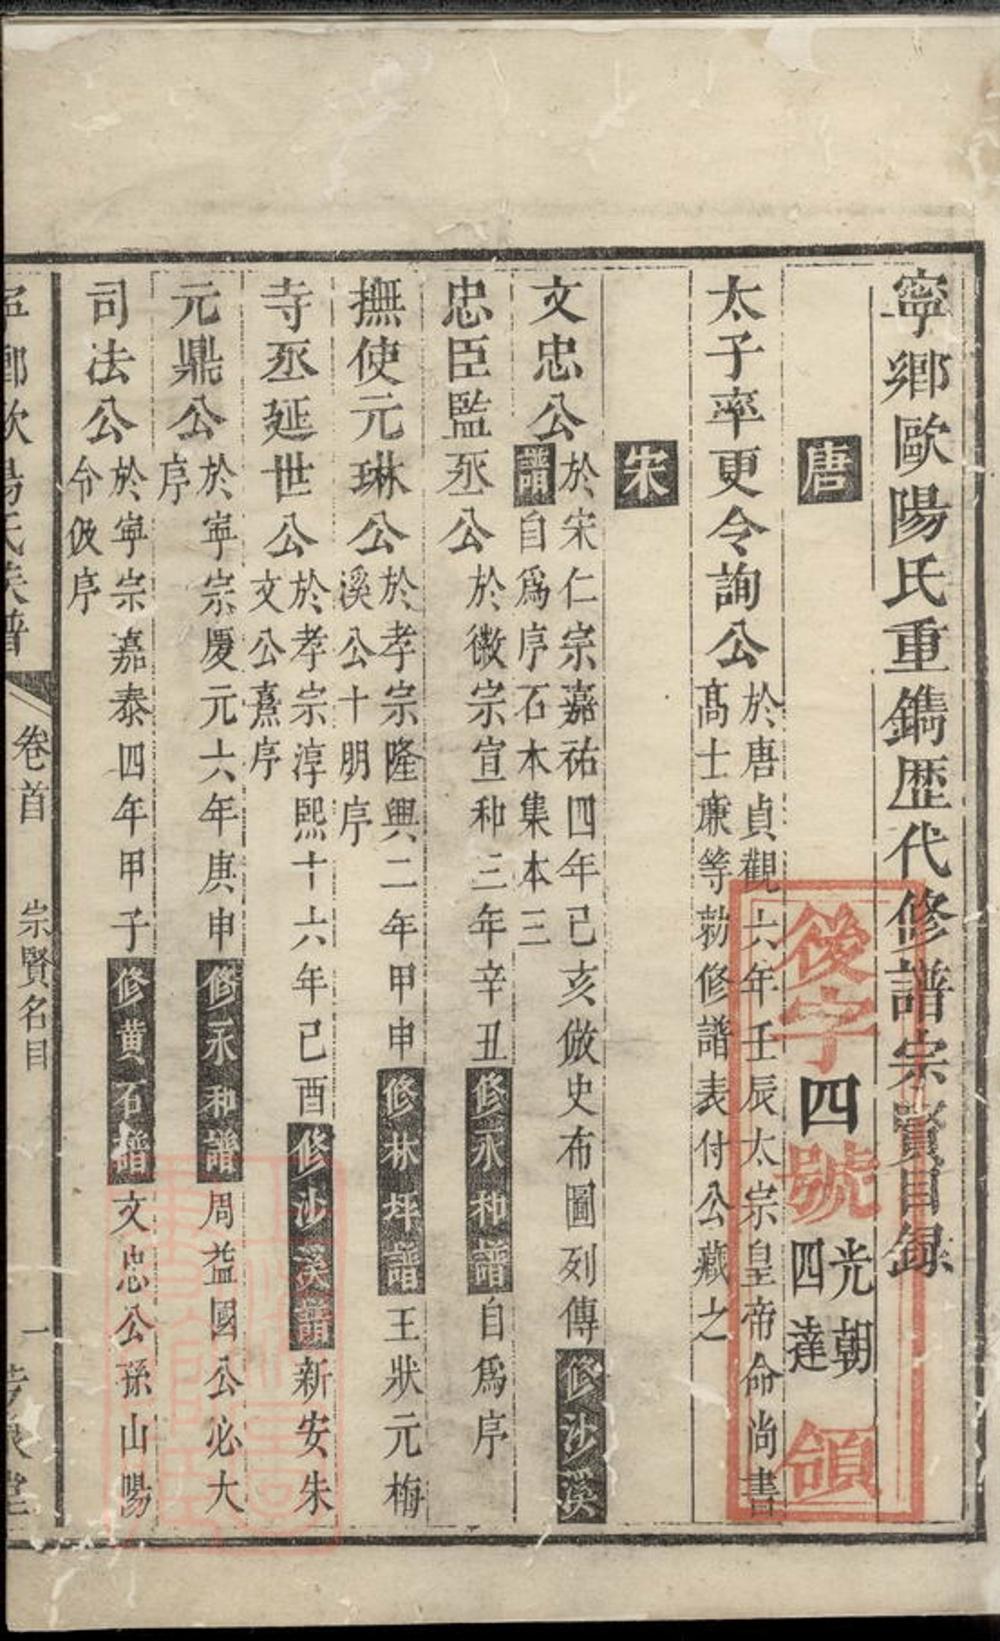 寧鄉歐陽氏重鐫歷代修譜宗賢目録
唐
後字四號 光朝 四達 領
太子率更令詢公 於唐貞觀六年壬辰太宗皇帝命尚書
高士廉等勅修譜表付公藏之
宋
文忠公 於宋仁宗嘉祐四年己亥倣史布圖列傳修沙溪
譜自爲序石本集本三
忠臣監丞公 於徽宗宣和三年辛丑修永和譜自爲序
撫使元琳公 於孝宗隆興二年甲申修林坪譜王狀元梅
溪公十朋序
寺丞延世公 於孝宗淳熙十六年己酉修沙溪譜新安朱
文公熹序
元鼎公 於寧宗慶元六年庚申修永和譜周益國公必大
序
司法公 於寧宗嘉泰四年甲子修黄石譜文忠公孫山陽
令伋序
寧鄉歐陽氏族譜 卷首 宗賢名目 一